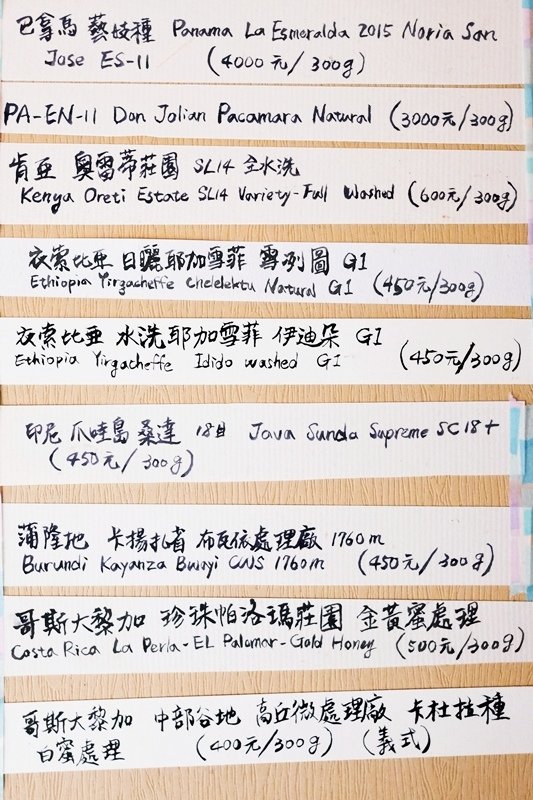 巴拿馬 藝妓種 Panama La Esmeralda 2015 Noria San
Jose ES-11 (4000元/300g)
PA-EN-11 Don Jolian Pacamara Natural (3000元/300g)
肯亜 奧雷蒂莊園 SL14 全水洗
Kenya Oreti Estate SL14 Variety-Full Washed (600元/300g)
衣索比亜 日曬耶加雪菲 雪冽圖 G1
Ethiopia Yirgacheffe Chelelektu Natural G1 (450元/300g)
衣索比亜 水洗耶加雪菲 伊迪朵 G1
Ethiopia Yirgacheffe Idido washed G1 (450元/300g)
印尼 爪哇島 桑達 18目 Java Sunda Supreme SC18+
(450元/300g)
蒲隆地 卡揚扎省 布瓦依處理廠 1760m
Burundi Kayanza Bwayi CWS 1760m (450元/300g)
哥斯大黎加 珍珠帕洛瑪莊園 金黃蜜處理
Costa Rica La Perla-EL Palomar-Gold Honey (500元/300g)
哥斯大黎加 中部谷地 高丘微處理廠 卡杜拉種
白蜜處理 (400元/300g) (義式)